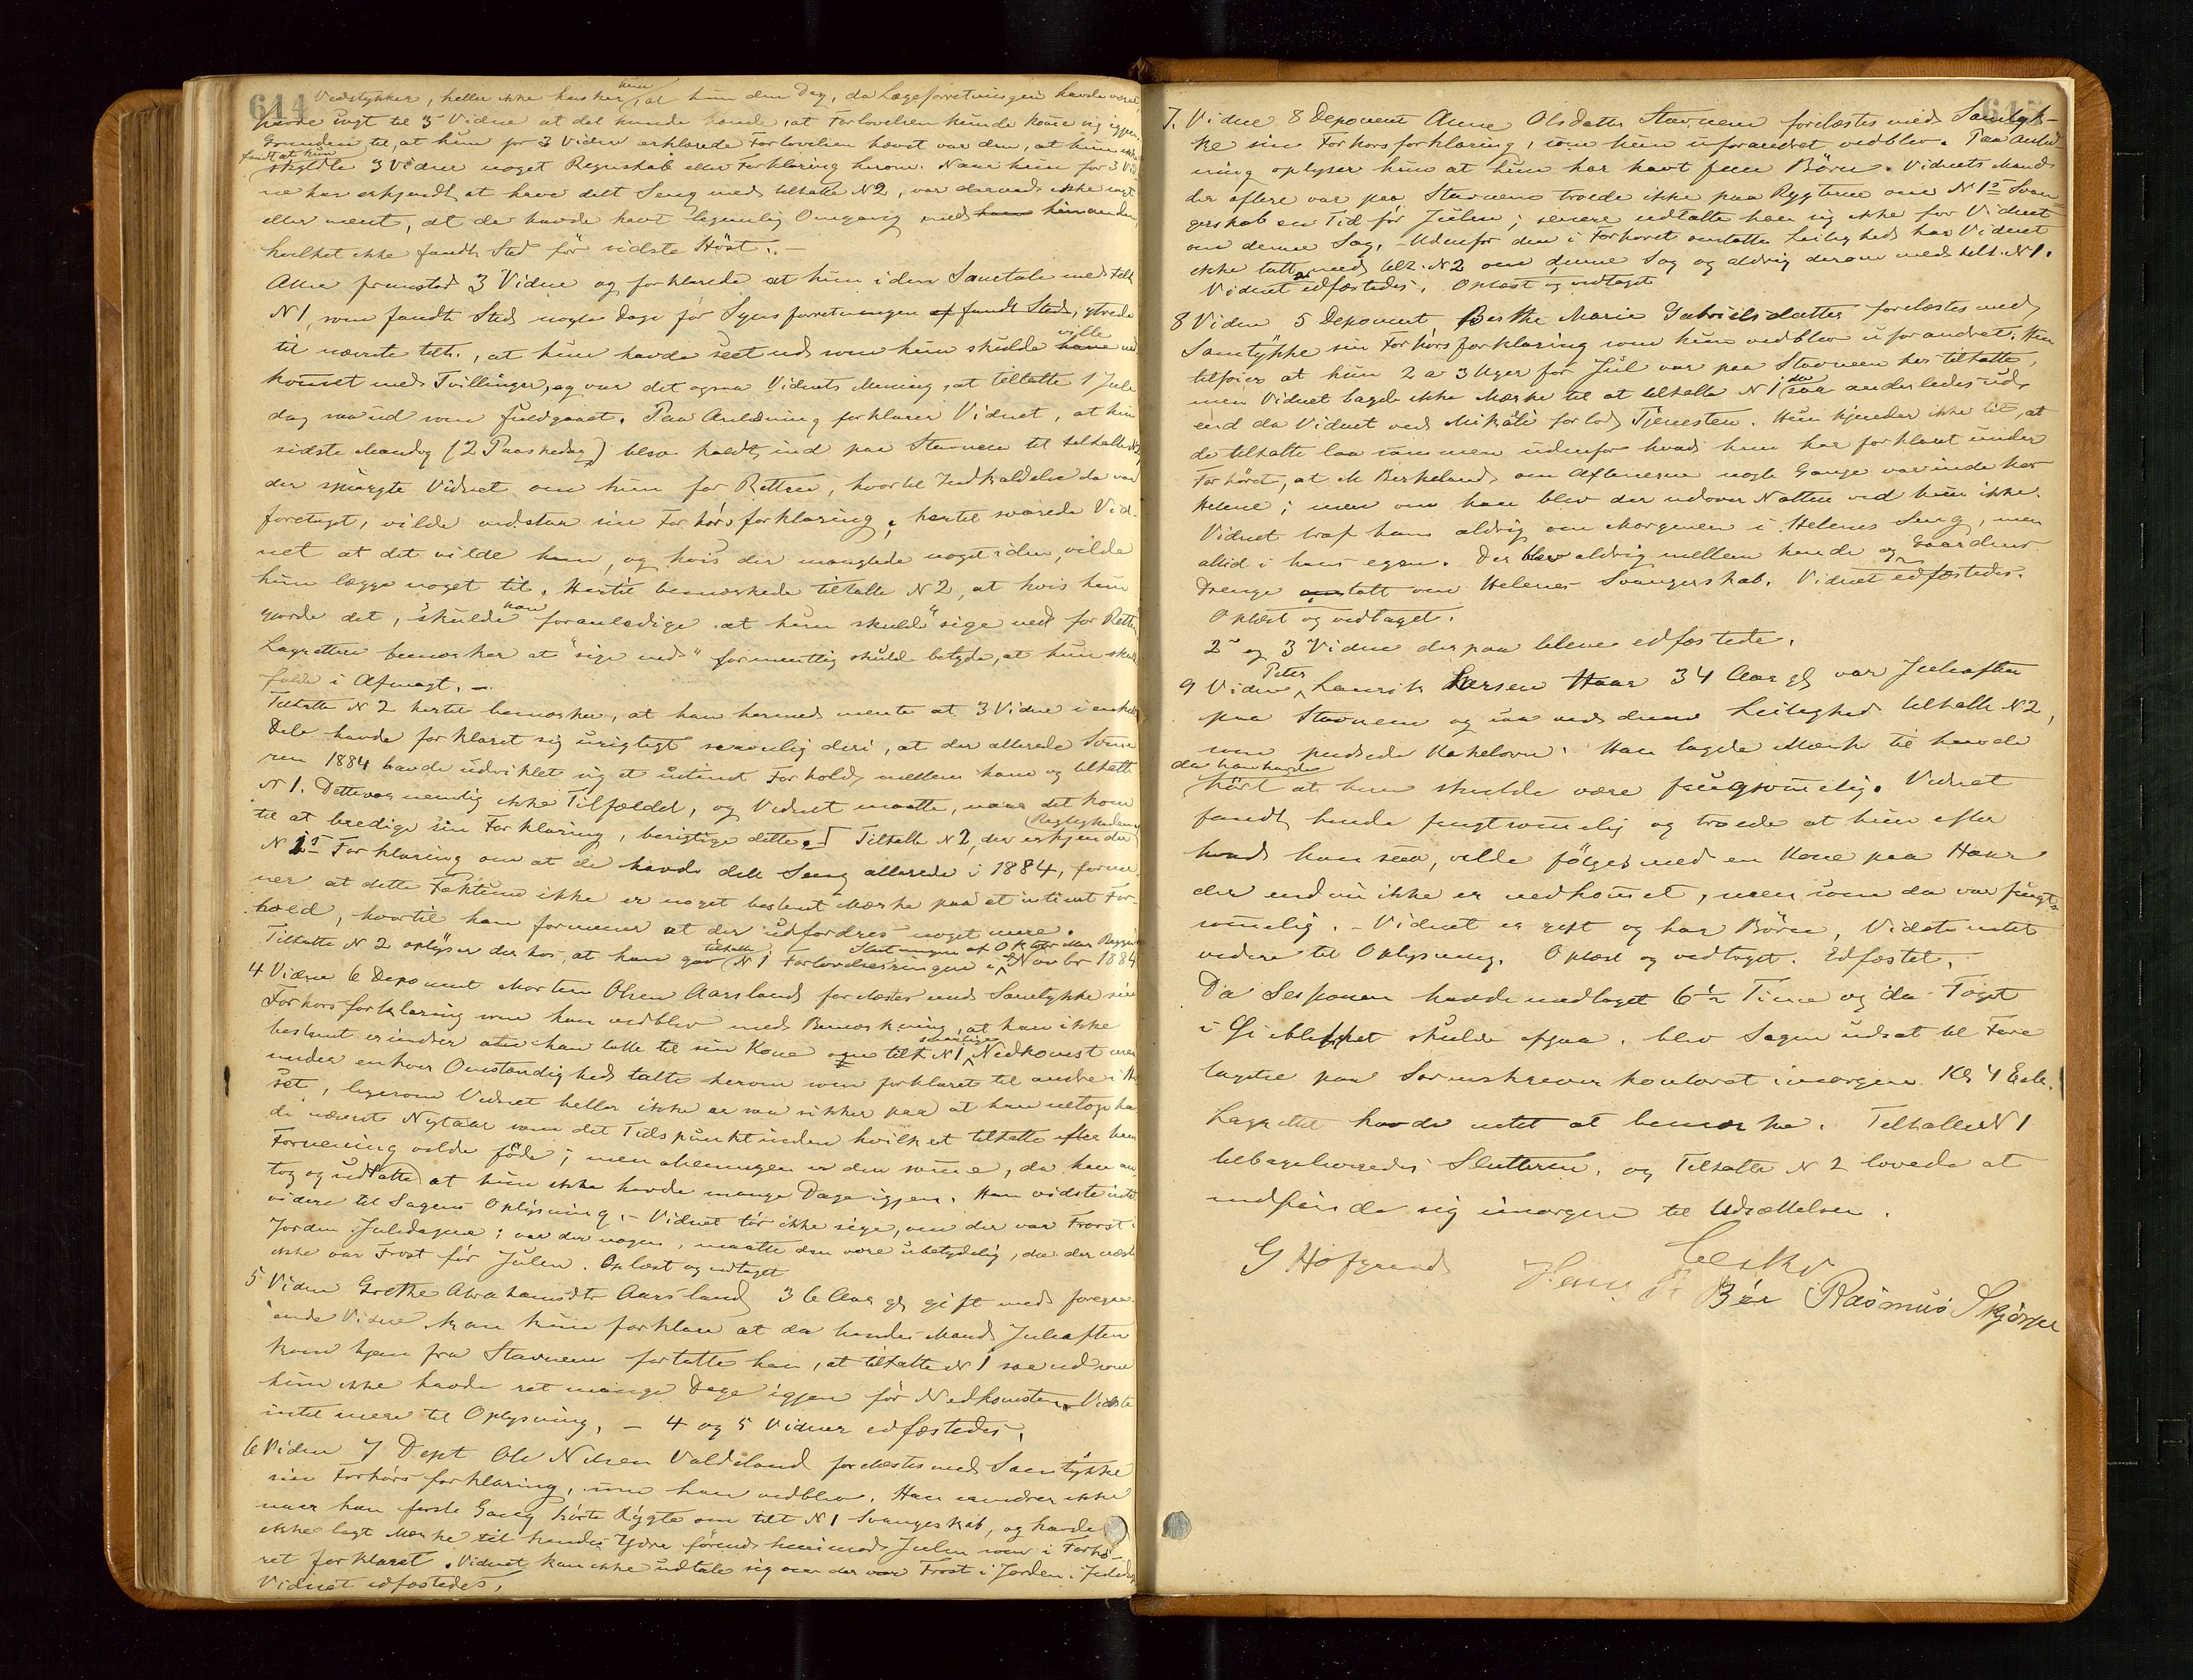 644
Vedstykker, heller ikke husker hun, at hun den Dag, da Lægeforretningen havde været,
havde sagt til 3 Vidne at det kunde hænde, at Forlovelsen kunde komme sig igjen.
Grunden til, at hun for 3 Vidne erklærede Forlovelsen hævet var den, at hun ikke
fandt at hun skyldte 3 Vidne noget Regnskab eller Forklaring herom. Naar hun for 3 Vid-
ne har erkjendt at have delt Seng med tiltalte N 2, var dermed ikke sagt
eller ment, at de havde havt legemlig Omgang med hinanden,
hvilket ikke fandt Sted før sidste Høst. –
Atter fremstod 3 Vidne og forklarede at hun i den Samtale med tilt
N 1, som fandt Sted nogle Dage før Synsforretningen af fandt Sted, ytrede
til nævnte tilt., at hun havde seet ud som hun skulde have ville ned
kommet med Tvillinger, og var det ogsaa Vidnets Mening, at tiltalte 1 Jule
dag saa ud som fuldgaaet. Paa Anledning forklarer Vidnet, at hun
sidste Mandag (2 Paaskedag) blev kaldt ind paa Stavnem til tiltalte N 2,
der spurgte Vidnet om hun for Retten, hvortil Indkaldelse da var
foretaget, vilde vedstaa sin Forhørsforklaring; hertil svarede Vid-
net at det vilde hun, og hvis der manglede noget i den, vilde
hun lægge noget til. Hertil bemærkede tiltalte N 2, at hvis hun
gjorde det, skulde han foranledige at hun skulde "sige ned" for Retten
Lagretten bemærker at "sige ned" formentlig skulde betyde, at hun skulde
falde i Afmagt. –
Tiltalte N 2 hertil bemærker, at han hermed mente at 3 Vidne i enkelte
Dele havde forklaret sig urigtigt navnlig deri, at der allerede Somme
ren 1884 havde udviklet sig et intimt Forhold mellem ham og tiltalte
N 1. Dette var nemlig ikke Tilfældet, og Vidnet maatte, naar det kom
til at bedige sin Forklaring, berigtige dette. Tiltalte N 2, der erkjender Rigtigheden af
N 1s Forklaring om at de havde delt Seng allerede i 1884, forme
ner at dette Faktum ikke er noget bestemt Mærke paa et intimt For-
hold, hvortil han formener at der udfordres noget mere.
Tiltalte N 2 oplyser derhos, at han gav tiltalte N 1 Forlovelsesringen i Slutningen af Oktober eller Begyn Novbr 1884
4 Vidne 6 Deponent Morten Olsen Aarsland forelæstes med Samtykke sin
Forhørsforklaring som han vedblev med Bemærkning, at han ikke
bestemt erindrer at han talte til sin Kone om tilt N 1 Nedkomst men
under enhver Omstændighed talte herom som forklaret til andre i Hu
set, ligesom Vidnet heller ikke er saa sikker paa at han netop ha
de nævnt Nytaar som det Tidspunkt inden hvilket tiltalte efter hans
Formening vilde føde; men Meningen er den samme, da han an
tog og udtalte at hun ikke havde mange Dage igjen. Han vidste intet
videre til Sagens Oplysning. – Vidnet tør ikke sige, om der var Frost i
Jorden Juledagene; var der nogen, maatte den være ubetydelig, da der næsten
ikke var Frost før Julen. Oplæst og vedtaget
5 Vidne Grethe Abrahamsdtr Aarsland 36 Aar gl gift med forega-
aende Vidne. Kan kun forklare at da hendes Mand Juleaften
kom hjem fra Stavnem fortalte han, at tiltalte N 1 saa ud som
hun ikke havde ret mange Dage igjen før Nedkomsten. Vidste
intet mere til Oplysning. – 4 og 5 Vidner edfæstedes.
6 Vidne 7 Dept Ole Nilsen Valdeland forelæstes med Samtykke
sin Forhørsforklaring, som han vedblev. Han erindrer ikke
naar han første Gang hørte Rygte om tilt N 1 Svangerskab, og havde
ikke lagt Mærke til hendes Ydre førend henimod Julen som i Forhø-
ret forklaret. Vidnet kan ikke udtale sig om der var Frost i Jorden i Juledag
Vidnet edfæstedes.
645
7. Vidne 8 Deponent Anne Olsdatter Stavnem forelæstes med Samtyk-
ke sin Forhørsforklaring, som hun uforandret vedblev. Paa Anled-
ning oplyser hun at hun har havt fem Børn. Vidnets Mand
der oftere var paa Stavnem troede ikke paa Rygterne om N 1s Svan-
gerskab en Tid før Julen; senere udtalte han sig ikke for Vidnet
om denne Sag. – Udenfor den i Forhøret omtalte Leilighed har Vidnet
ikke talt med tilt. N 2 om denne Sag og aldrig derom med tilt. N 1.
Vidnet edfæstedes. Oplæst og vedtaget
8 Vidne 5 Deponent Berthe Marie Gabrielsdatter forelæstes med
Samtykke sin Forhørsforklaring som hun vedblev uforandret. Hun
tilføier at hun 2 a 3 Uger før Jul var paa Stavnem hos tiltalte,
men Vidnet lagde ikke Mærke til at tiltalte N 1 da saa anderledes ud,
end da Vidnet ved Mikæli forlod Tjenesten. Hun kjender ikke til, at
de tiltalte laa sammen udenfor hvad hun har forklaret under
Forhøret, at M Birkeland om Aftenerne nogle Gange var inde hos
Helene; men om han blev der udover Natten ved hun ikke.
Vidnet traf ham aldrig om Morgenen i Helenes Seng, men
altid i hans egen. Der blev aldrig mellem hende og Gaardens
Drenge omtalt om Helenes Svangerskab. Vidnet edfæstedes.
Oplæst og vedtaget.
2 og 3 Vidne derpaa bleve edfæstede.
9 Vidne Peter Lauritz Larsen Haar 34 Aar gl var Juleaften
paa Stavnem og saa ved denne Leilighed tiltalte N 2,
som pudsede Kakelovn. Han lagde Mærke til hende
da han havde hørt at hun skulde være frugtsommelig. Vidnet
fandt hende frugtsommelig og troede at hun efter
hvad han saa, vilde følges med en Kone paa Haar
der endnu ikke er nedkommet, men som da var frugt-
sommelig. – Vidnet er gift og har Børn. Vidste intet
videre til Oplysning. Oplæst og vedtaget. Edfæstet.
Da Sessionen havde medtaget 6½ Time og da Toget
i Øieblikket skulde afgaa, blev Sagen udsat til Fore
tagelse paa Sorenskriverkontoret imorgen Kl 4 Eftm.
Lagrettet havde intet at bemærke. Tiltalte N 1
tilbageleveredes Slutteren, og Tiltalte N 2 lovede at
indfinde sig imorgen til Udsættelsen.
G Høfgrand
Rasmus Skjørpe